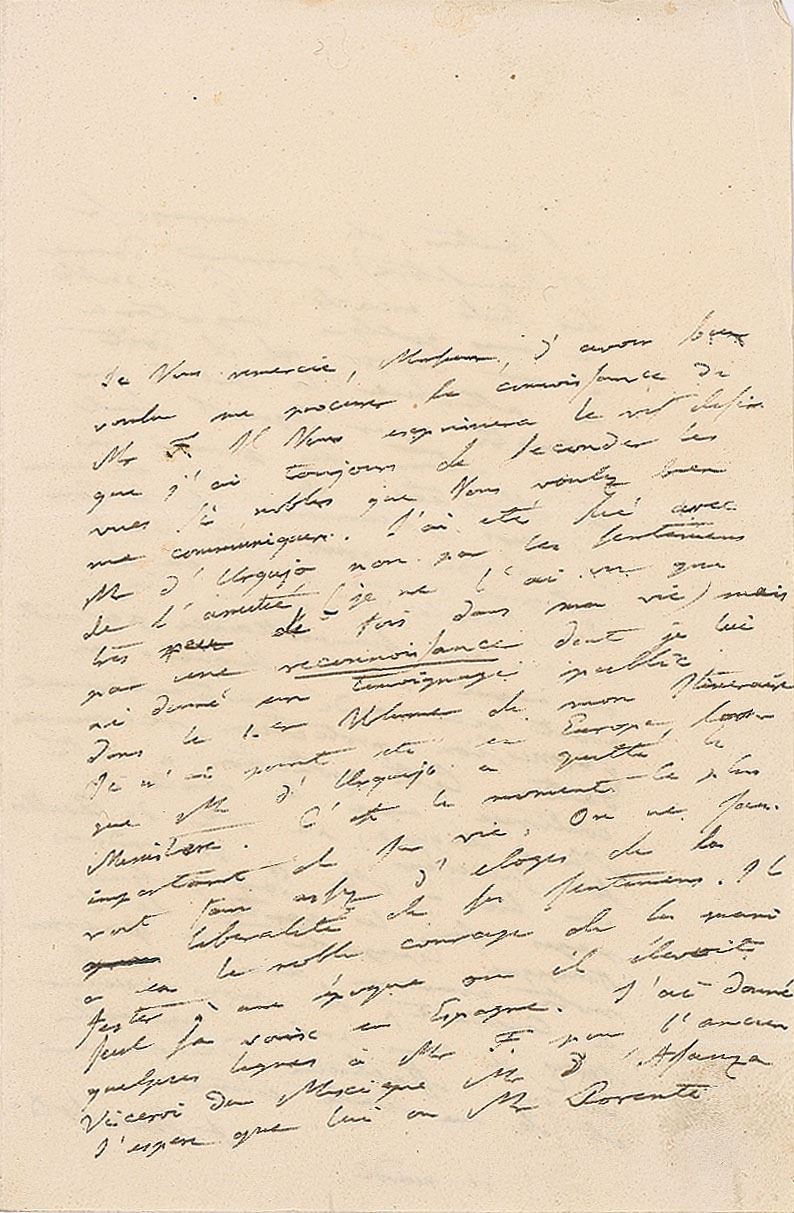 Je Vous remercie, Monsieur, d'avoir bien
voulu me procurer la connoissance de
Mr F Il Vous exprimera le vif desir
que j'ai toujours de seconder les
vues si nobles que Vous voulez bien
me communiquer. J'ai été lié avec
Mr d'Urquijo non par les sentimens
de l'amitié (je ne l'ai vu que
très peu de fois dans ma vie) mais
par une reconnoissance dont je lui
ai donné un temoignage public
dans le 1er Volume de mon Itineraire
Je n'ai point été en Europe
que Mr d'Urquijo a quitté le
Ministere. C'est le moment le plus
important de sa vie. On ne sau-
roit faire assez d'eloges de la
liberalité de ses sentimens. Il
a eu le noble courage de les mani
fester à une époque où il élevoit
seul sa voix en Espagne. J'ai donné
quelques lignes à Mr F pour l'ancien
Viceroi du Mexique Mr d'Asanza
J'espere que lui ou Mr